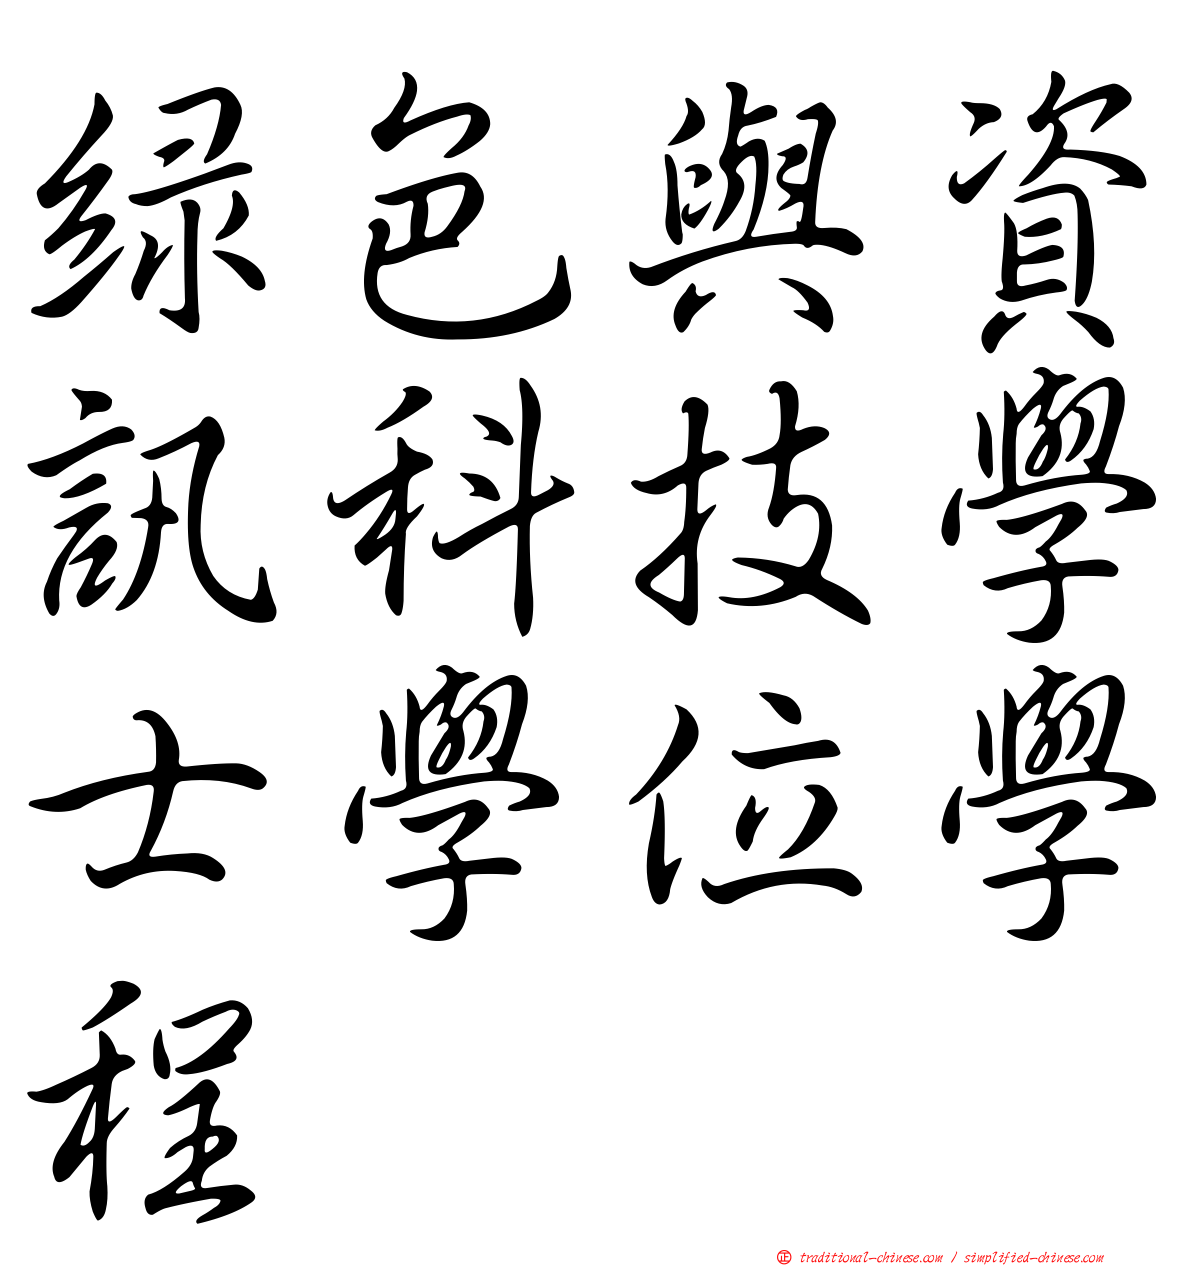 綠色與資
訊科技學
士學位學
程
正 traditional-chinese.com / simplified-chinese.com